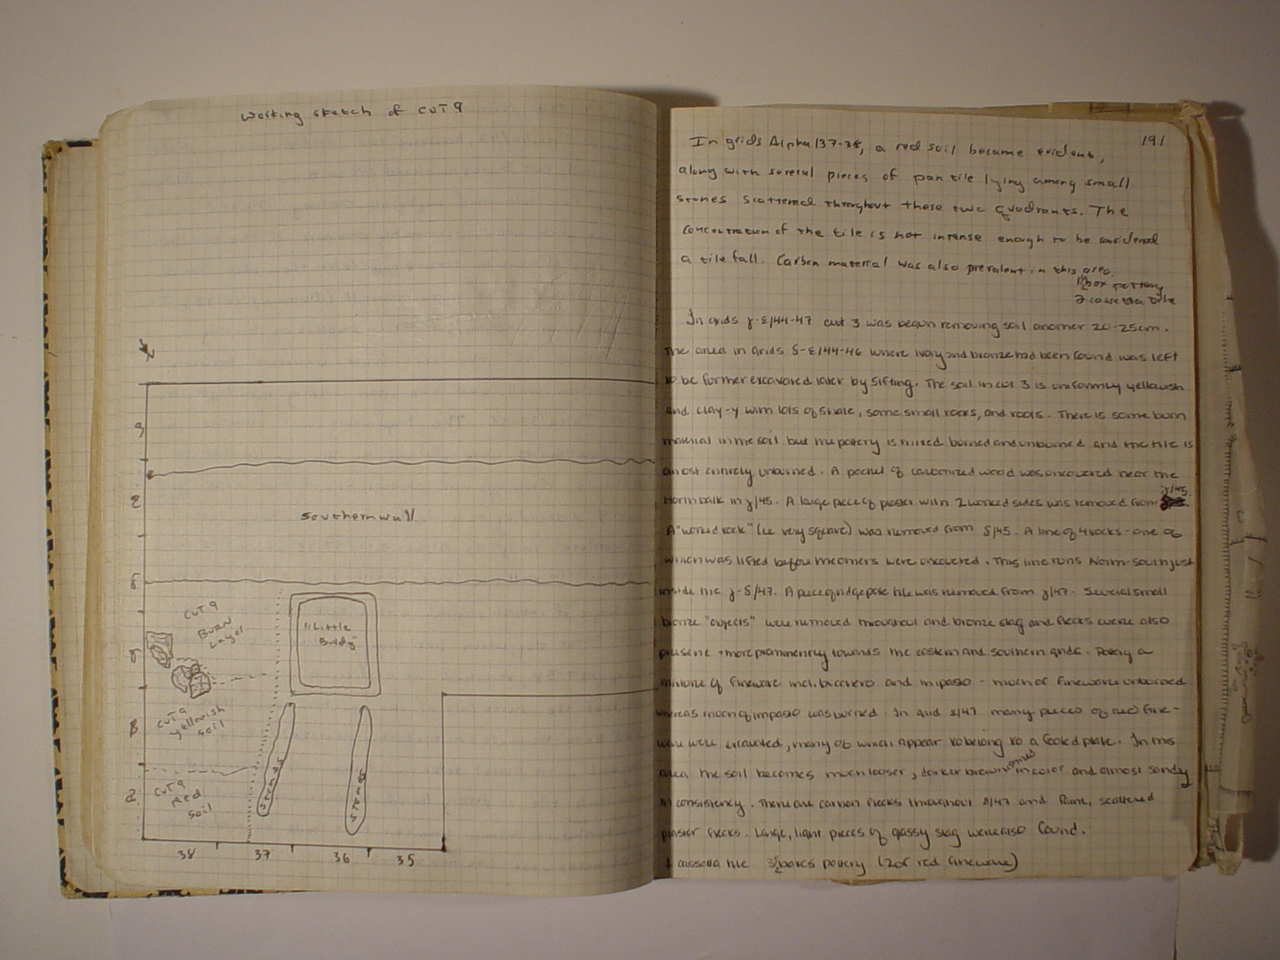 Working sketch of CUT 9
N
Southern wall
CUT 9
BURN
Layer
"Little
Buldg"
CUT 9
yellowish
soil
CUT 9
Red
soil
Stones
Stones
38 37 36 35
191
In grids Alpha/37-38, a red soil became evident,
along with several pieces of pan tile lying among small
stones scattered throughout these two quadrants. The
concentration of the tile is not intense enough to be considered
a tile fall. Carbon material was also prevalent in this area.
1/2 box pottery
tile
In grids γ-ε/44-47 cut 3 was begun removing soil another 20-25cm.
The area in grids δ-ε/44-46 where ivory and bronze had been found was left
to be further excavated later by sifting. The soil in cut 3 is uniformly yellowish
and clay-y with lots of shale, some small rocks, and roots. There is some burn
material in the soil but the pottery is mixed burned and unburned and the tile is
almost entirely unburned. A pocket of carbonized wood was uncovered near the
North balk in γ/45. A large piece of plaster with 2 worked sides was removed from γ/45.
A "worked rock" (ie very square) was removed from δ/45. A line of 4 rocks - one of
which was lifted before the others were uncovered. This line runs North-south just
inside the γ-δ/47. A piece of ridgepole tile was removed from γ/47. Several small
bronze "objects" were removed throughout and bronze slag and flecks were also
present + more prominently towards the eastern and southern grids. Pottery a
mixture of fineware incl. bucchero and impasto - much of fineware unburned
whereas much of impasto was burned. In grid ε/47 many pieces of red fine-
ware were excavated, many of which appear to belong to a footed plate. In this
area the soil becomes much looser, darker brown in color and almost sandy
in consistency. There are carbon flecks throughout ε/47 and faint, scattered
plaster flecks. Large, light pieces of glassy slag were also found.
1 cassetta tile 3 1/2 boxes pottery (2 of red fineware)